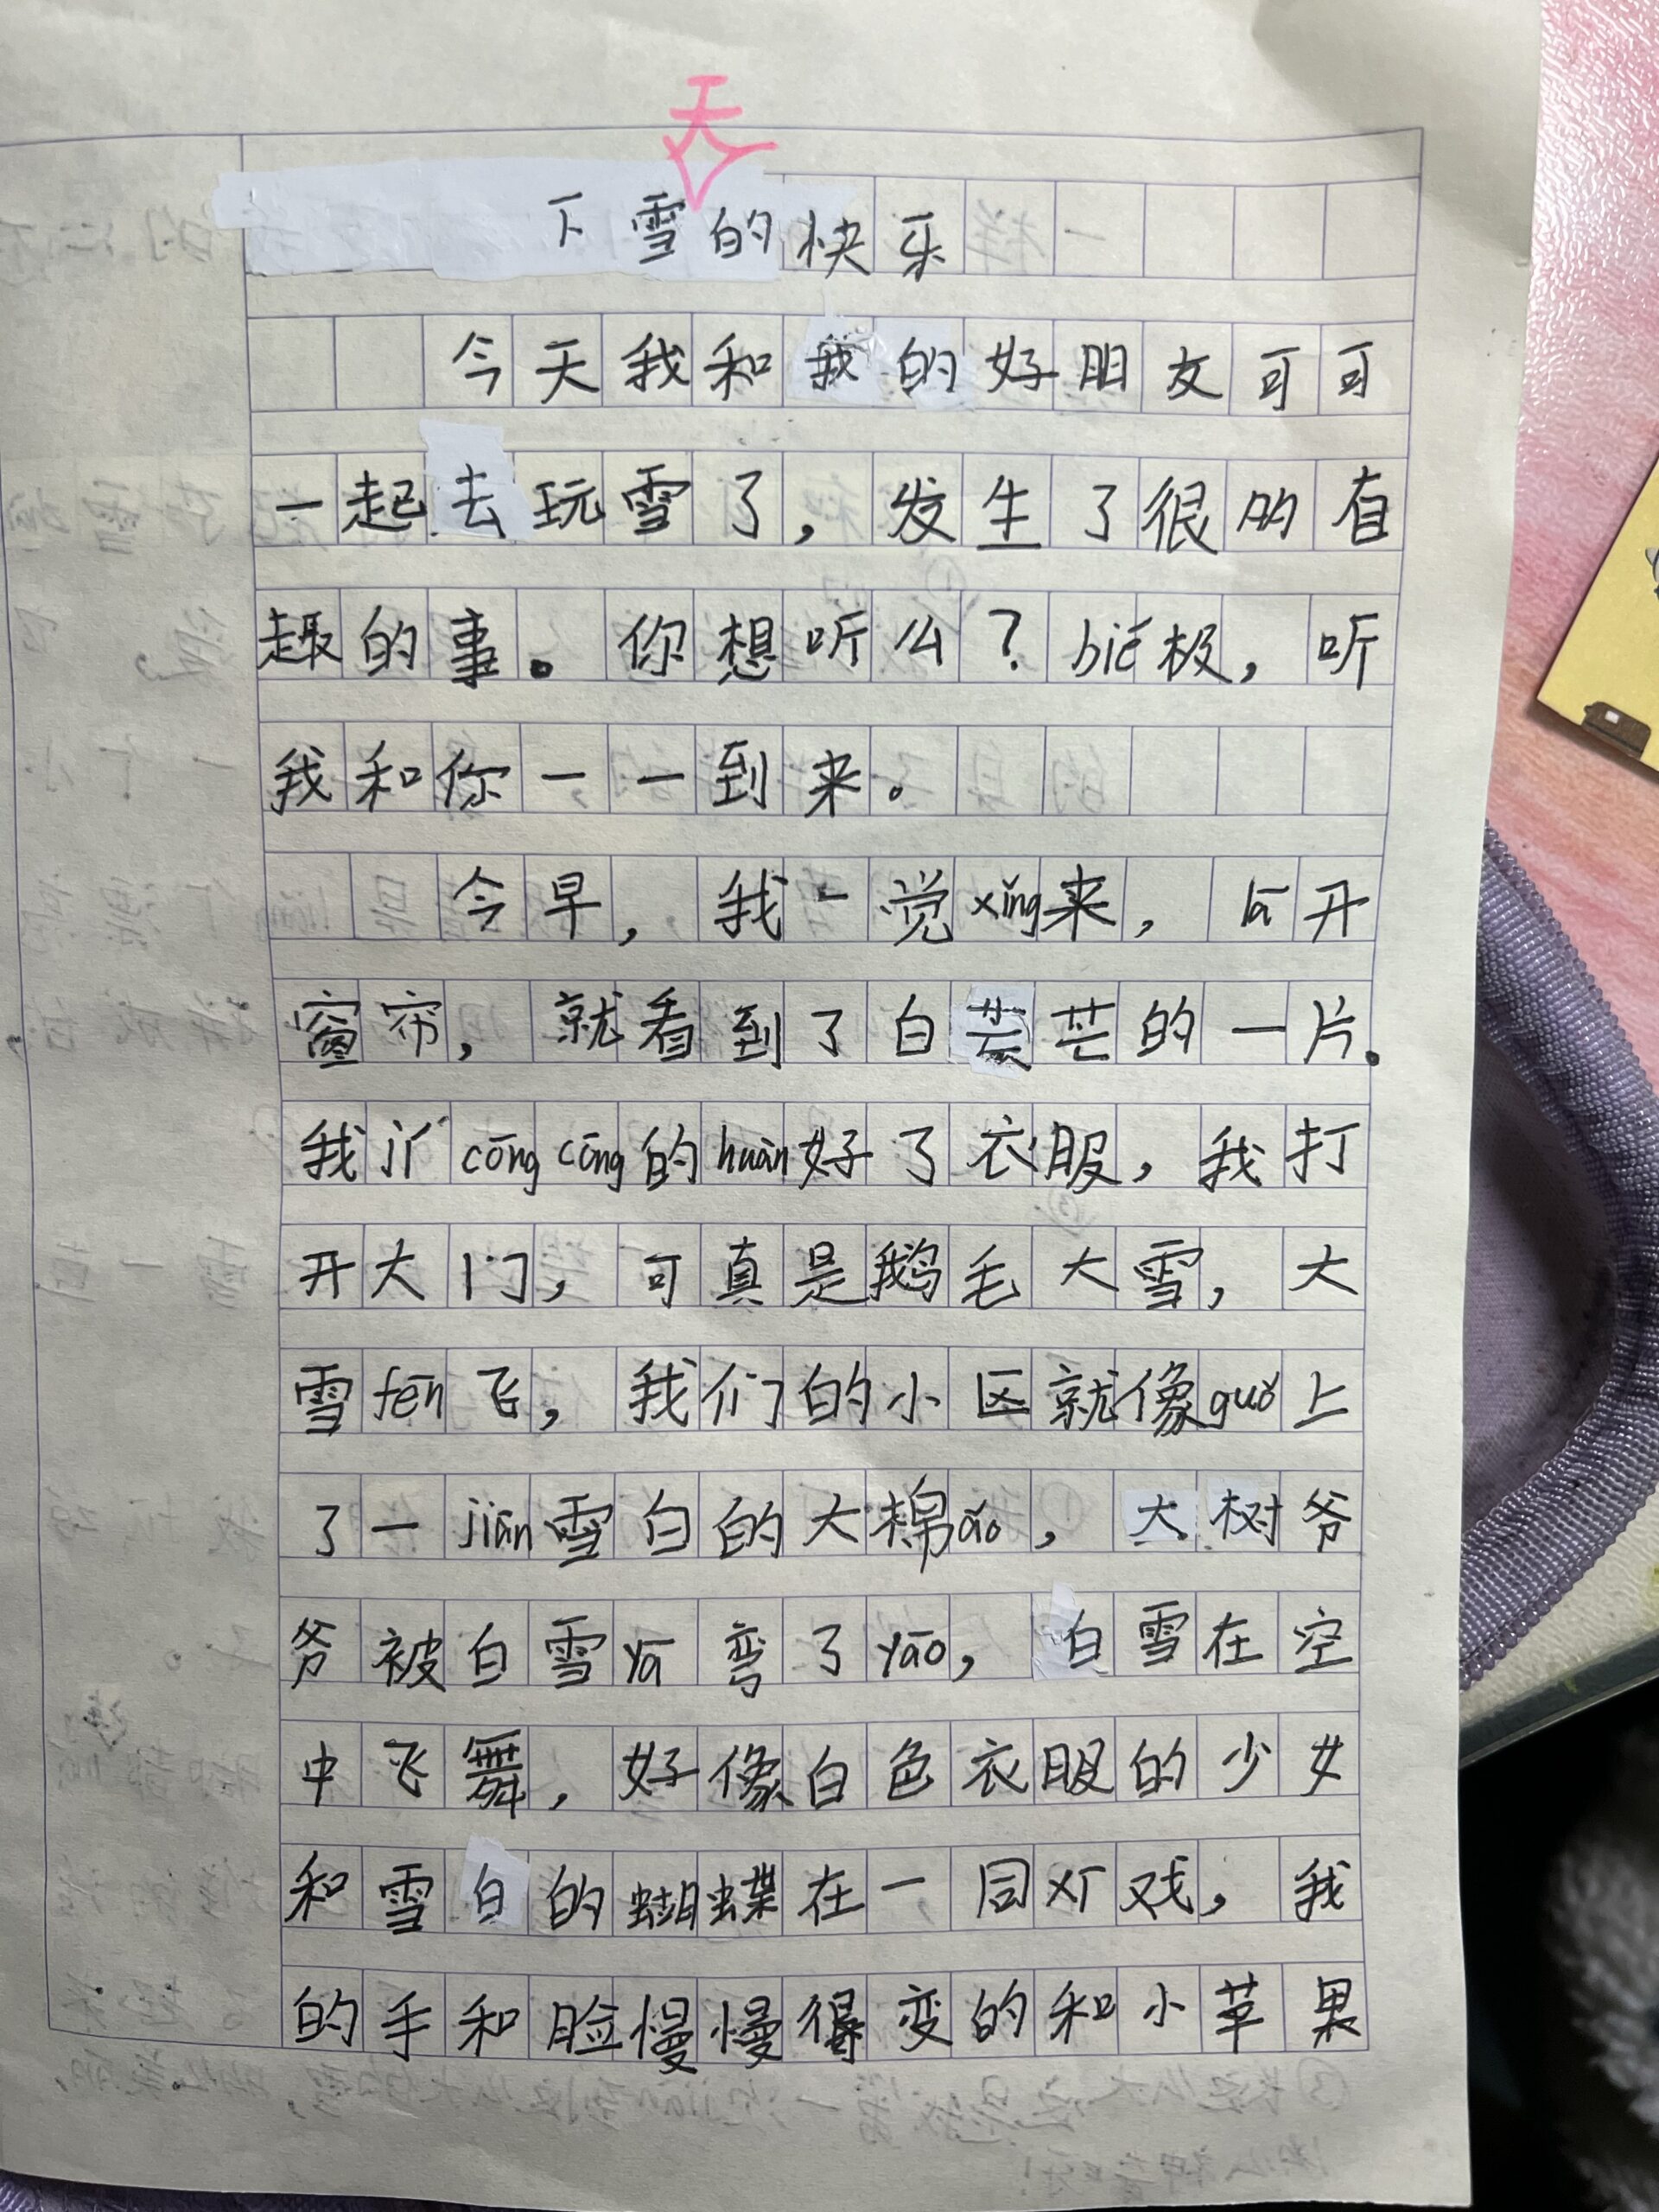 天
下雪的快乐
今天我和我的好朋友可可
一起去玩雪了，发生了很的有
趣的事。你想听么？biē极，听
我和你一一到来。
今早，我一觉xǐng来，lā开
窗帘，就看到了白芒芒的一片。
我cōng cōng的huàn好了衣服，我打
开大门，可真是鹅毛大雪，大
雪fēn飞，我们的小区就像guǒ上
了一jiān雪白的大棉ǎo，大树爷
爷被白雪yā弯了yāo，白雪在空
中飞舞，好像白色衣服的少女
和雪白的蝴蝶在一同戏，我
的手和脸慢慢得变的和小苹果